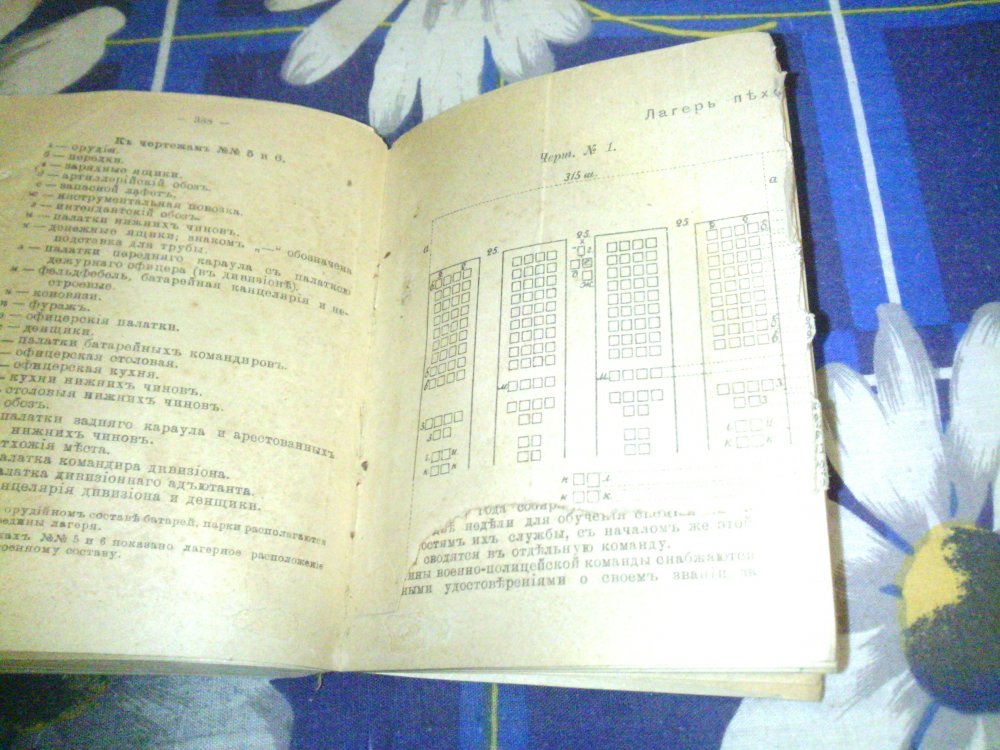 — 388 —
Къ чертежамъ №№ 5 и 6.
— орудія.
б — передки.
— зарядные ящики.
д — артиллерійскій обозъ.
е — запасной лафетъ.
ж — инструментальная повозка.
— интендантскій обозъ.
и — палатки нижнихъ чиновъ.
к — денежные ящики; знакомъ „—“ обозначена
подставка для трубы.
л — палатки передняго караула съ палаткою
дежурнаго офицера (въ дивизіонѣ).
м — фельдфебель, батарейная канцелярія и не-
строевые.
— коновязи.
— фуражъ.
— офицерскія палатки.
— денщики.
— палатки батарейныхъ командировъ.
— офицерская столовая.
— офицерская кухня.
кухни нижнихъ чиновъ.
столовыя нижнихъ чиновъ.
обозъ.
палатки задняго караула и арестованныхъ
нижнихъ чиновъ.
тхожія мѣста.
алатка командира дивизіона.
алатка дивизіоннаго адъютанта.
нцелярія дивизіона и денщики.
орудійномъ составѣ батарей, парки располагаются
редины лагеря.
жахъ №№ 5 и 6 показано лагерное расположеніе
ренному составу.
Лагерь пѣхо
Черт. № 1.
315 ш.
а
а
25.
25.
25.
м
м
З
З
З
З
к
к
к
к
к
л.
к
к.
года собир
двѣ недѣли для обученія
остямъ ихъ службы, съ началомъ же этой
сводятся въ отдѣльную команду.
ины военно-полицейской команды снабжаются
ными удостовѣреніями о своемъ званіи за